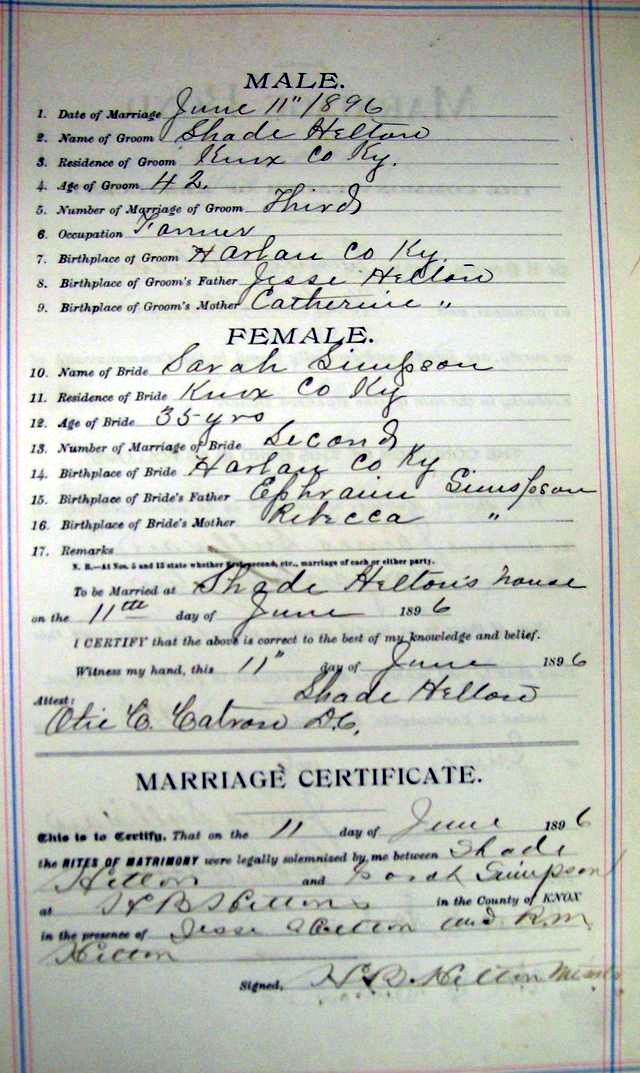 MALE.
1. Date of Marriage June 11" 1896
2. Name of Groom Shade Helton
3. Residence of Groom Knox Co Ky.
4. Age of Groom 42.
5. Number of Marriage of Groom Third
6. Occupation Farmer
7. Birthplace of Groom Harlan Co Ky.
8. Birthplace of Groom's Father Jesse Helton
9. Birthplace of Groom's Mother Catherine "
FEMALE.
10. Name of Bride Sarah Simpson
11. Residence of Bride Knox Co Ky
12. Age of Bride 35 yrs
13. Number of Marriage of Bride Second
14. Birthplace of Bride Harlan Co Ky
15. Birthplace of Bride's Father Ephraim Simpson
16. Birthplace of Bride's Mother Rebecca "
17. Remarks
N. B.—At Nos. 5 and 13 state whether first, second, etc., marriage of each or either party.
To be Married at Shade Helton's house
on the 11th day of June 1896
I CERTIFY that the above is correct to the best of my knowledge and belief.
Witness my hand, this 11" day of June 1896
Shade Helton
Attest:
Otie C. Catron D.C.
MARRIAGE CERTIFICATE.
This is to Certify, That on the 11 day of June 1896
the RITES OF MATRIMONY were legally solemnized by me between Shade
Helton and Sarah Simpson
at H B Heltons in the County of KNOX
in the presence of Jesse Helton and R.M.
Helton
Signed, H B Helton